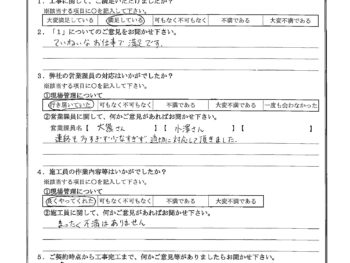 1．工事に関して、ご満足いただけましたか？
※該当する項目に○を記入して下さい。
大変満足している 満足している 可もなく不可もなく 不満である 大変不満である
2．「1」についてのご意見をお聞かせ下さい。
ていねいなお仕事で満足です。
3．弊社の営業課員の対応はいかがでしたか？
※該当する項目に○を記入して下さい。
①現場管理について
行き届いていた 可もなく不可もなく 不満である 大変不満である 一度も会わなかった
②営業課員に関して、何かご意見があればお聞かせ下さい。
営業課員名【 大嶌さん 】【 小澤さん 】【 】
連絡も多すぎず少なすぎず、適切に対応して頂きました。
4．施工員の作業内容等はいかがでしたか？
※該当する項目に○を記入して下さい。
①現場管理について
良くやってくれた 可もなく不可もなく 不満である 大変不満である
②施工員に関して、何かご意見があればお聞かせ下さい。
まったく不満はありません
5．ご契約時点から工事完工まで、何かご意見等がありましたらお聞かせ下さい。